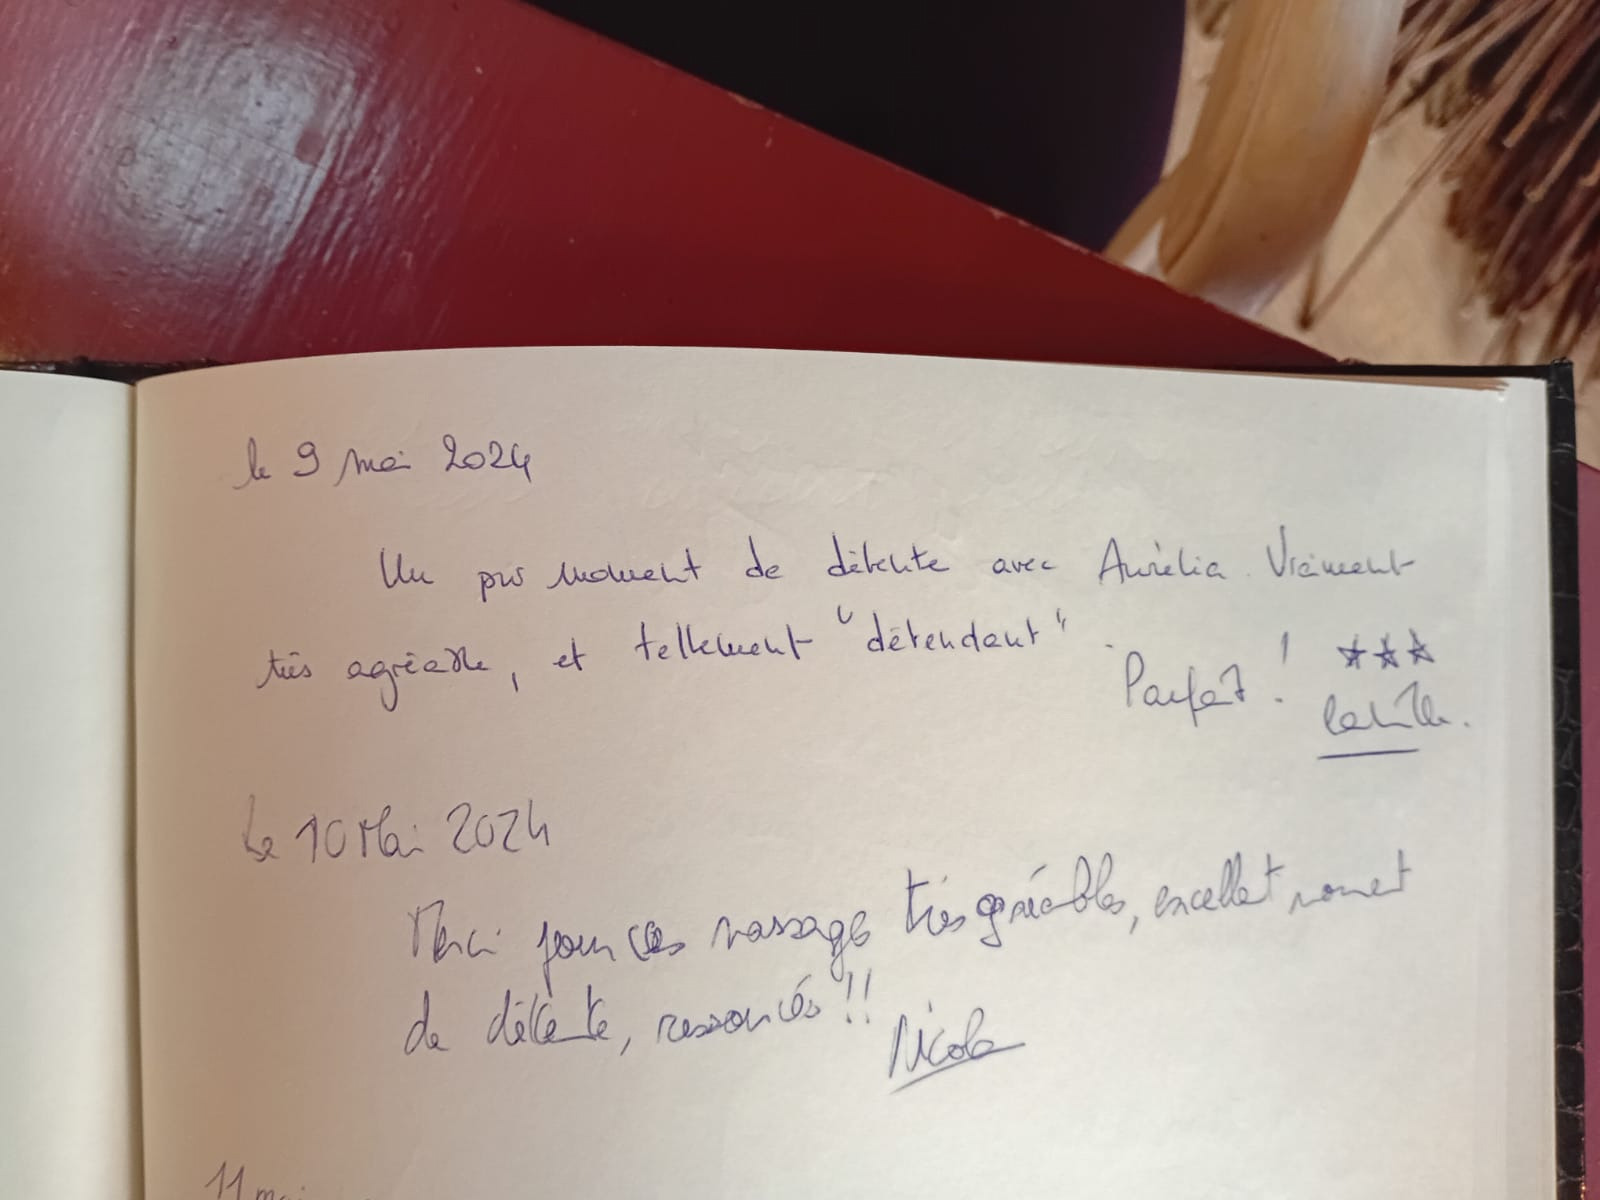 le 9 mai 2024
Un pur moment de détente avec Aurélia. Vraiment
très agréable, et tellement "détendant".
Parfait !
Le 10 Mai 2024
Merci pour ces massage très agréables, excellent moment
de détente, ressourcés !!
Nicolas
11 mai